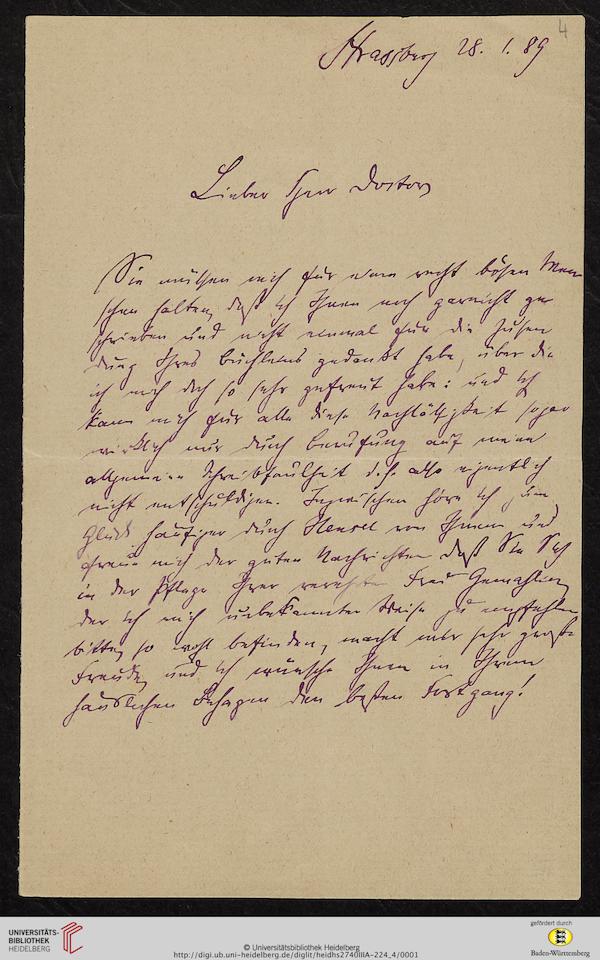 4
Strassburg 28. 1. 89
Lieber Herr Doctor
Sie müssen mich für einen recht bösen Men
schen halten, daß ich Ihnen noch garnicht ge
schrieben und nicht einmal für die Zusen
dung Ihres Büchleins gedankt habe, über die
ich mich doch so sehr gefreut habe: und ich
kann mich für alle diese Nachlässigkeit sogar
wirklich nur durch Berufung auf meine
allgemeine Schreibfaulheit d. h. also eigentlich
nicht entschuldigen. Inzwischen höre ich zum
Glück häufiger durch Hensel von Ihnen und
freue mich der guten Nachrichten. Daß Sie Sich
in der Pflege Ihrer verehrten Frau Gemahlin,
der ich mich unbekannter Weise zu empfehlen
bitte, so wohl befinden, macht mir sehr große
Freude, und ich wünsche Ihnen in Ihrem
häuslichen Behagen den besten Fortgang!
UNIVERSITÄTS-
BIBLIOTHEK
HEIDELBERG
© Universitätsbibliothek Heidelberg
http://digi.ub.uni-heidelberg.de/diglit/heidhs2740IIIA-224_4/0001
gefördert durch
Baden-Württemberg